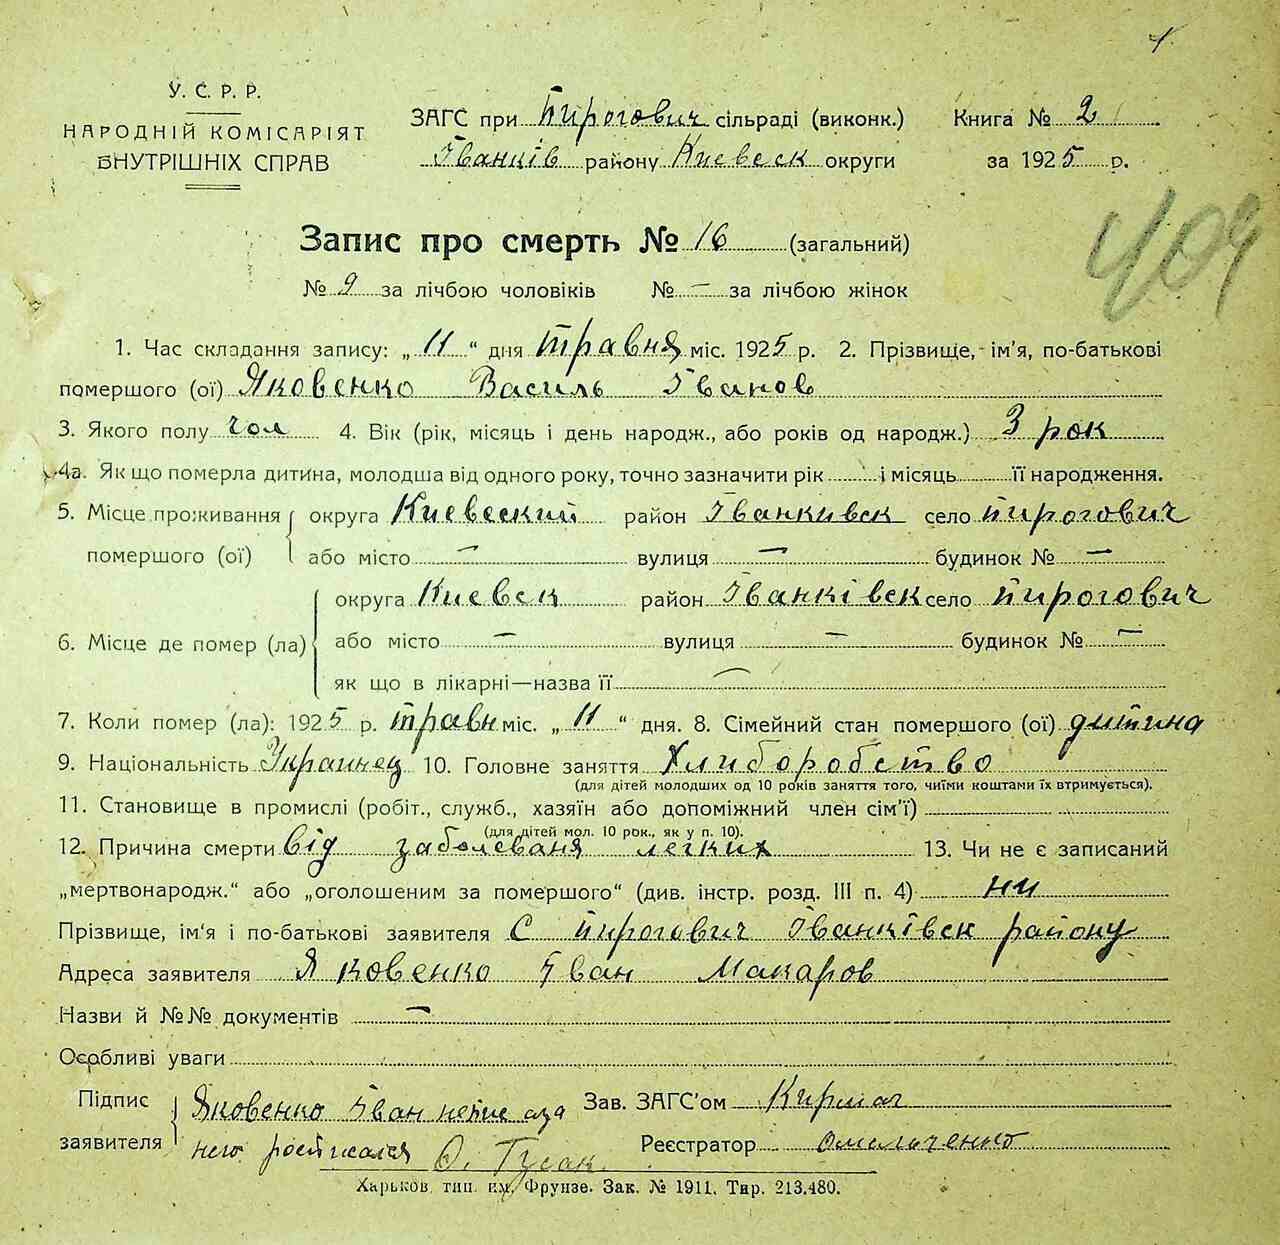 У. С. Р. Р.
НАРОДНІЙ КОМІСАРІЯТ
ВНУТРІШНІХ СПРАВ
ЗАГС при Пирогович сільраді (виконк.)
Іванків району Киевеск округи
Книга № 2
за 1925 р.
409
Запис про смерть № 16 (загальний)
№ 9 за лічбою чоловіків № – за лічбою жінок
1. Час складання запису: „11“ дня травня міс. 1925 р. 2. Прізвище, ім'я, по-батькові
помершого (ої) Яковенко Василь Іванов
3. Якого полу чол 4. Вік (рік, місяць і день народж., або років од народж.) 3 рок
4а. Як що померла дитина, молодша від одного року, точно зазначити рік і місяць її народження.
5. Місце проживання округа Киевеский район Іванкивск село Пирогович
помершого (ої) або місто – вулиця – будинок № –
округа Киевск район Іванківск село Пирогович
6. Місце де помер (ла) або місто – вулиця – будинок № –
як що в лікарні—назва її –
7. Коли помер (ла): 1925 р. травн міс. „11“ дня. 8. Сімейний стан помершого (ої) дитина
9. Національність Украинец 10. Головне заняття Хлиборобство
(для дітей молодших од 10 років заняття того, чиїми коштами їх втримується).
11. Становище в промислі (робіт., служб., хазяїн або допоміжний член сім'ї)
(для дітей мол. 10 рок., як у п. 10).
12. Причина смерти від заболеваня легких 13. Чи не є записаний
„мертвонародж.“ або „оголошеним за помершого“ (див. інстр. розд. III п. 4) ни
Прізвище, ім'я і по-батькові заявителя С Пирогович Іванківск району
Адреса заявителя Яковенко Іван Макаров
Назви й №№ документів –
Особливі уваги
Підпис заявителя Яковенко Іван
него росписался О. Гусак
Зав. ЗАГС'ом Кирмач
Реєстратор Омельченко
Харьков. тип. им. Фрунзе. Зак. № 1911. Тир. 213.480.